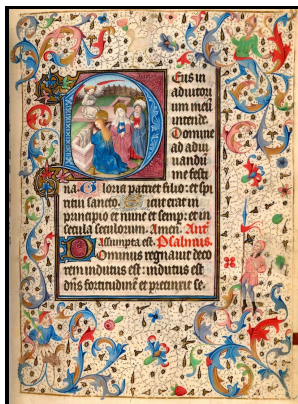 Deus in
adiutori
um meū
intende.
Domine
ad adiu
uandū
me festi
na. Gloria patri et filio: et spi
ritui sancto. Sicut erat in
principio et nunc et semp: et in
secula seculorum. Amen. Ant
Assumpta est. Psalmus.
Dominus regnauit deco
rem indutus est: indutus est
dns fortitudinem et precinxit se.